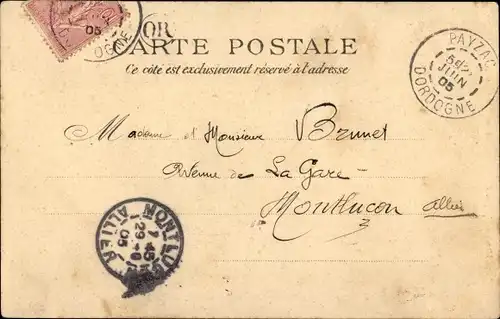 05
OGNE
OR
CARTE POSTALE
Ce côté est exclusivement réservé à l'adresse
PAYZAC
JUIN
05
DORDOGNE
Madame et Monsieur Brunet
Avenue de La Gare
Montlucon Allier
MONTLUÇON
45
29-6
05
ALLIER